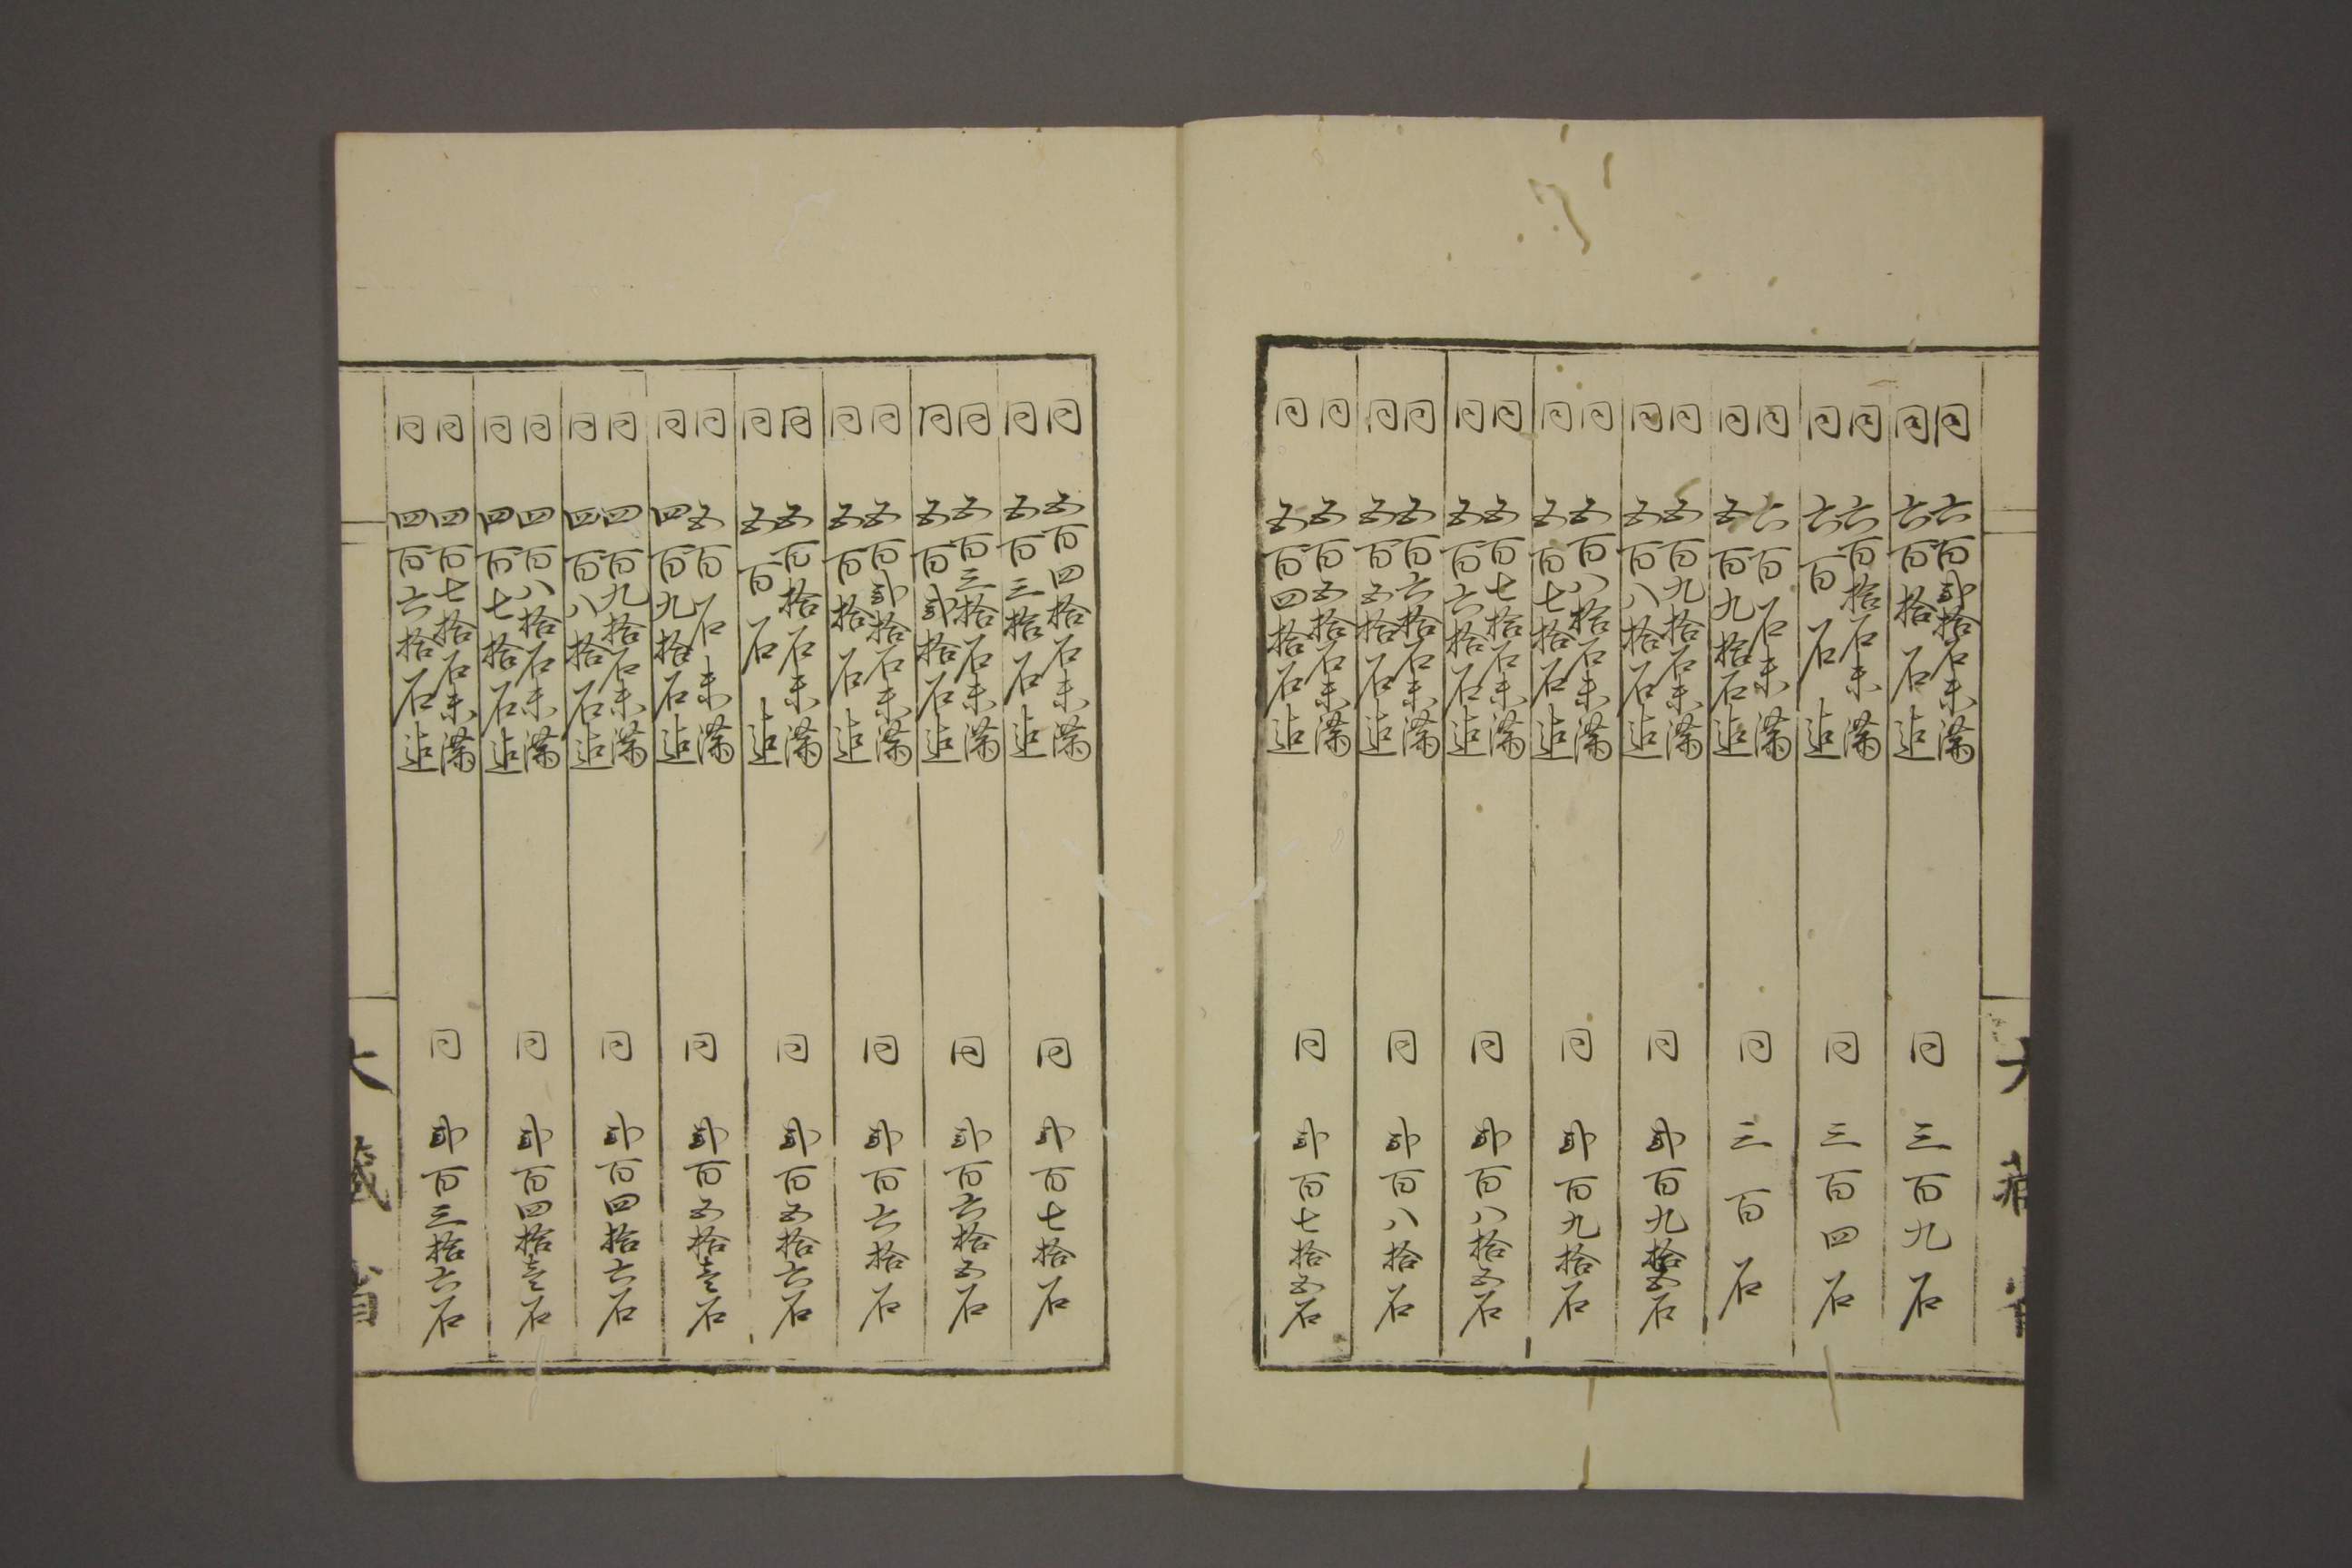 同 六百弐拾石未満
同 六百拾石迠
同 三百九石
同 六百拾石未満
同 六百石迠
同 三百四石
同 六百石未満
同 五百九拾石迠
同 三百石
同 五百九拾石未満
同 五百八拾石迠
同 弐百九拾五石
同 五百八拾石未満
同 五百七拾石迠
同 弐百九拾石
同 五百七拾石未満
同 五百六拾石迠
同 弐百八拾五石
同 五百六拾石未満
同 五百五拾石迠
同 弐百八拾石
同 五百五拾石未満
同 五百四拾石迠
同 弐百七拾五石
同 五百四拾石未満
同 五百三拾石迠
同 弐百七拾石
同 五百三拾石未満
同 五百弐拾石迠
同 弐百六拾五石
同 五百弐拾石未満
同 五百拾石迠
同 弐百六拾石
同 五百拾石未満
同 五百石迠
同 弐百五拾六石
同 五百石未満
同 四百九拾石迠
同 弐百五拾壱石
同 四百九拾石未満
同 四百八拾石迠
同 弐百四拾六石
同 四百八拾石未満
同 四百七拾石迠
同 弐百四拾壱石
同 四百七拾石未満
同 四百六拾石迠
同 弐百三拾六石
大蔵省